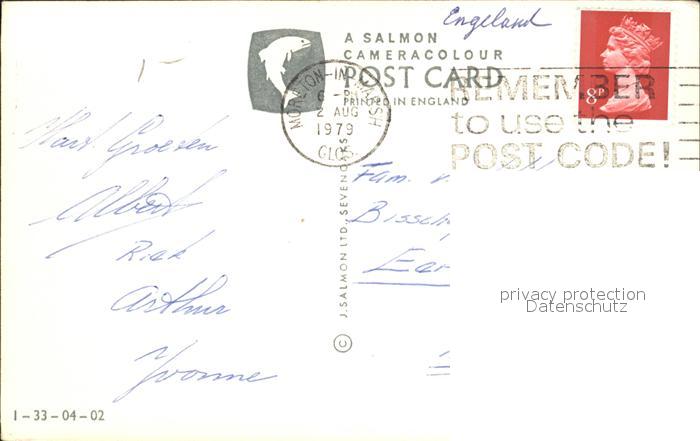 Engeland
A SALMON
CAMERACOLOUR
POST CARD
PRINTED IN ENGLAND
MORETON-IN-MARSH
2 AUG
1979
GLOS
8P
REMEMBER
to use the
POST CODE!
Groeten
Albert
Rick
Arthur
Yvonne
© J. SALMON LTD., SEVENOAKS
Fam.
privacy protection
Datenschutz
1-33-04-02